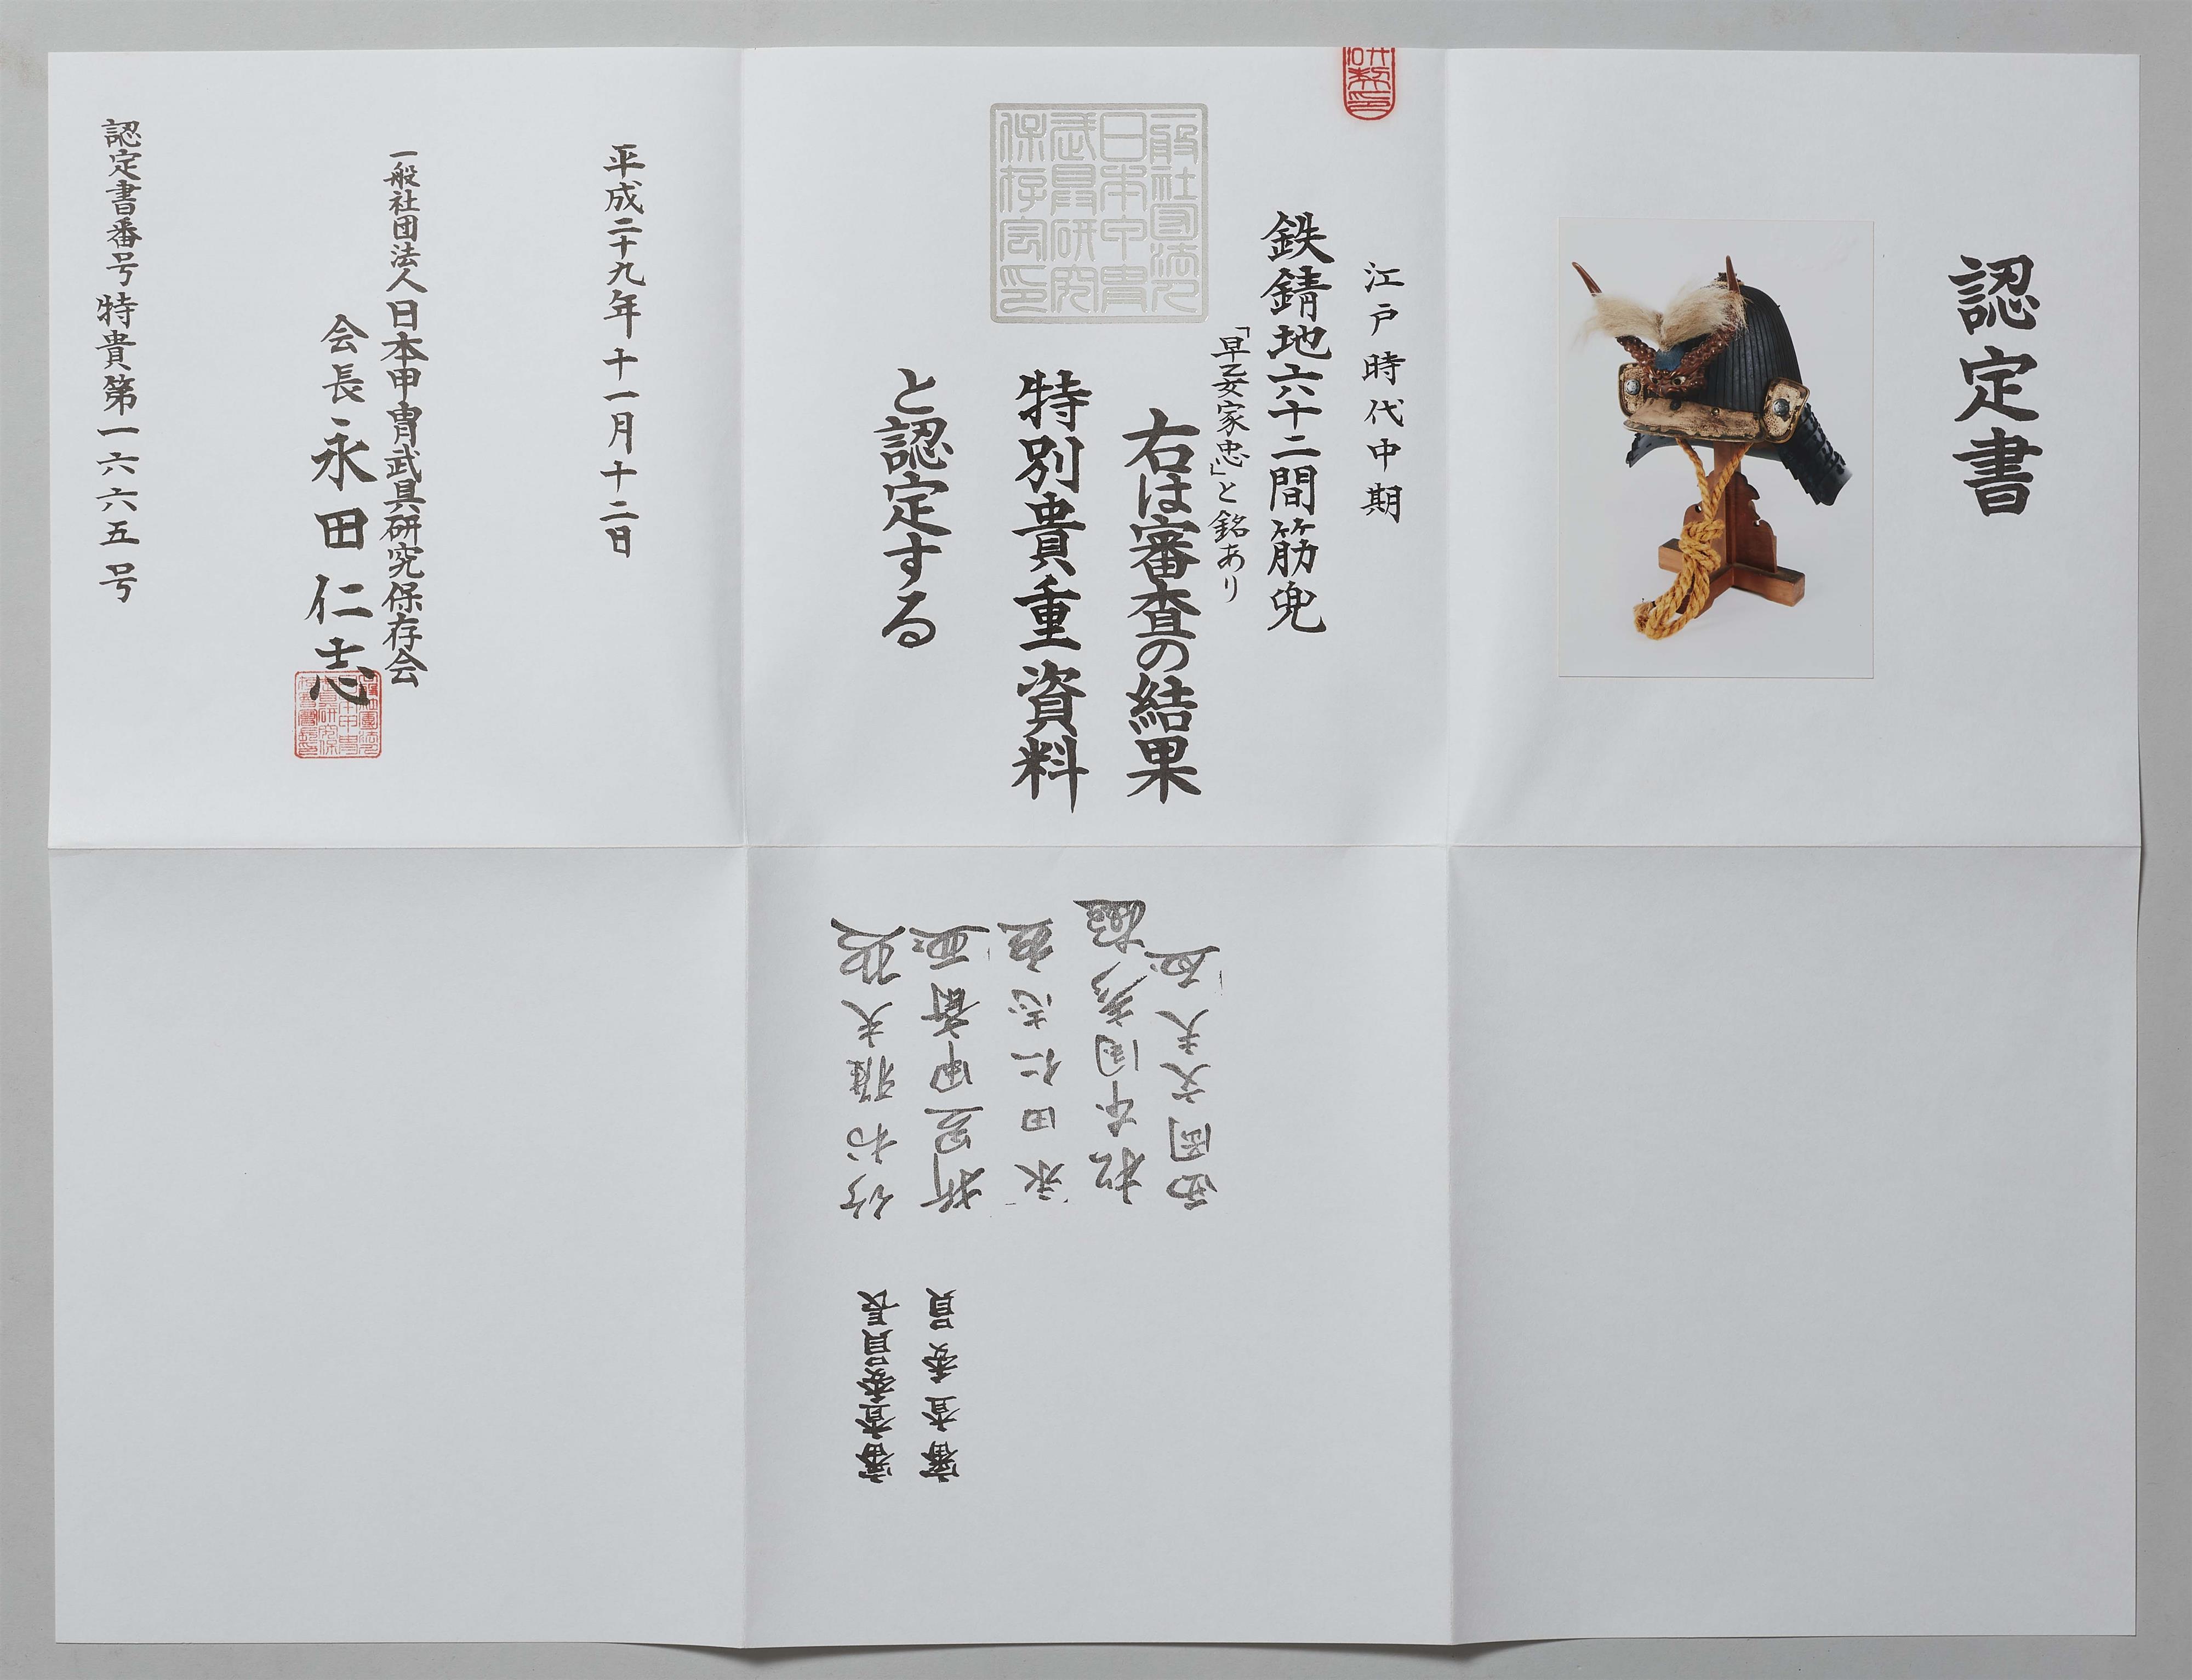 認定書
江戸時代中期
鉄錆地六十二間筋兜
「早乙女家忠」と銘あり
右は審査の結果
特別貴重資料
と認定する
平成二十九年十一月十二日
一般社団法人日本甲冑武具研究保存会
会長 永田仁志
認定書番号特貴第一六六五号
一般社団法人日本甲冑武具研究保存会印
審査委員長
竹村雅夫
審査委員
新里甲斎
永田仁志
西岡文夫